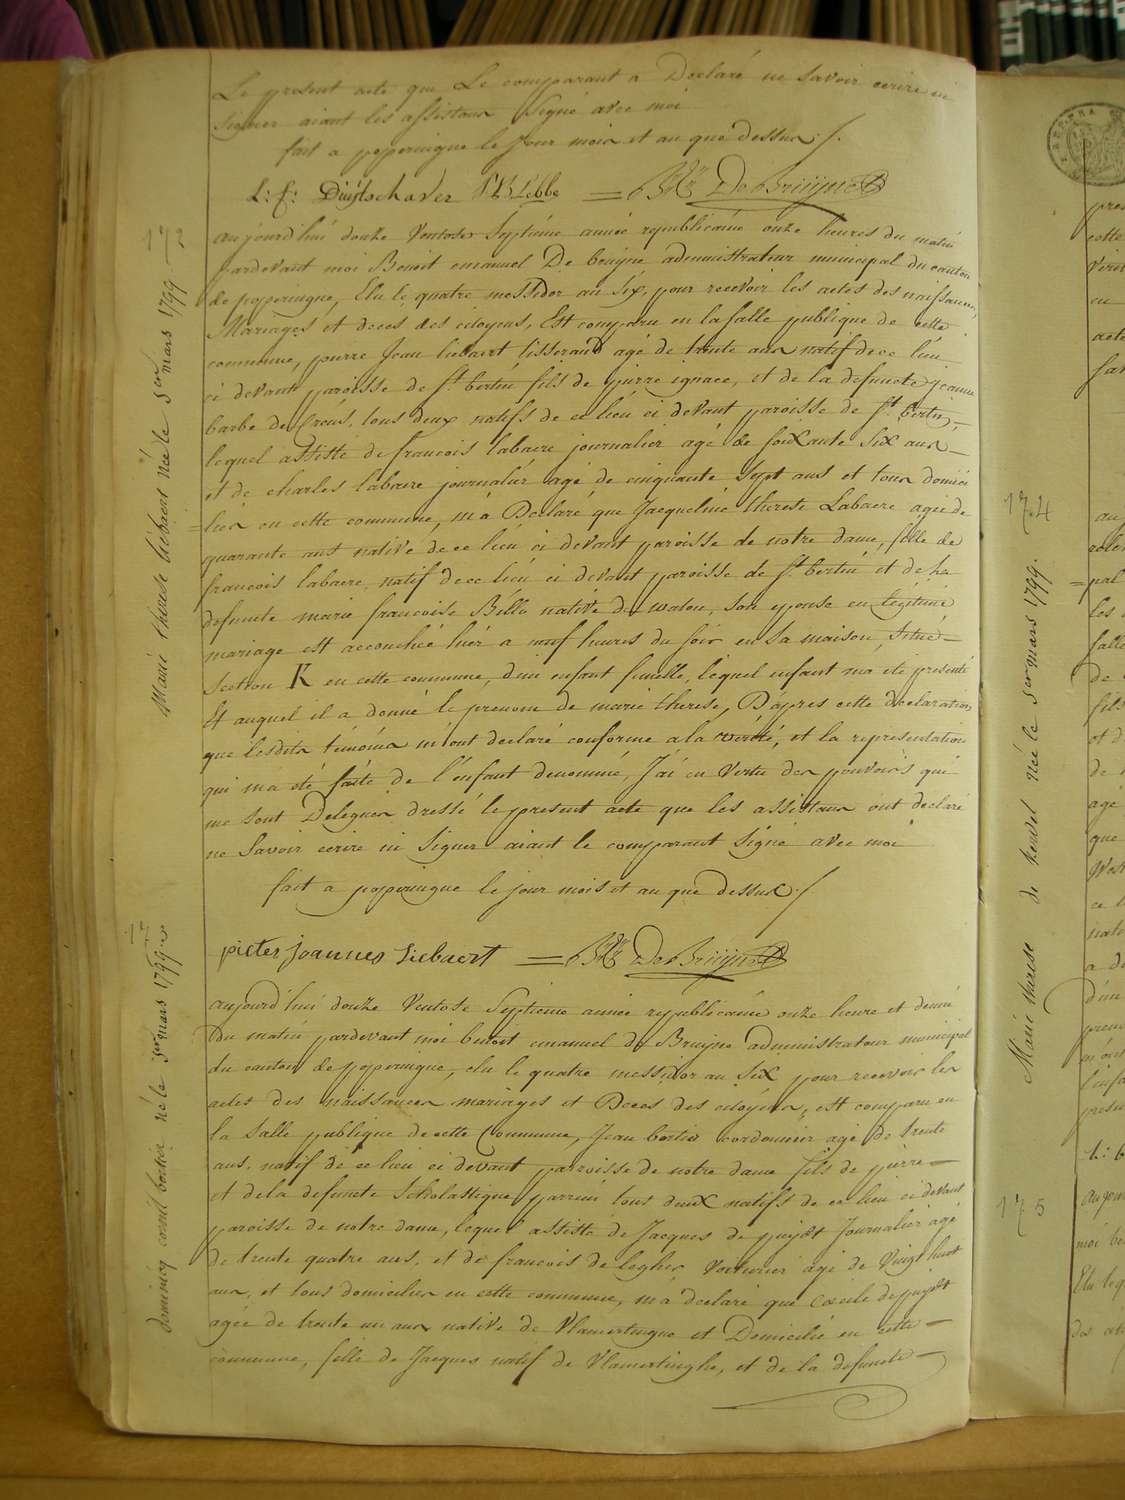 Le present acte que Le comparant a Declaré ne savoir ecrire ni
signer aiant les assistans signé avec moi
fait a poperingue le jour mois et an que dessus ./.
L: F: Duÿtschaver P B Lebbe = De Bruÿne
172
Marie therese liebaert née le 1er mars 1799.
aujourd'hui douze Ventose Septieme année republicaine onze heures du matin
pardevant moi Benoit emanuel De bruijne administrateur municipal du canton
de poperingue, Elu le quatre messidor an six, pour recevoir les actes des naissances,
Mariages et deces des citoyens, Est comparu en la salle publique de cette
commune, pierre Jean liebaert tisserand agé de trente ans natif de ce lieu
ci devant paroisse de st. bertin fils de pierre ignace, et de la defuncte jeanne
barbe de Creus, tous deux natifs de ce lieu ci devant paroisse de st. bertin,
lequel assisté de francois labaere journalier agé de soixante six ans
et de charles labaere journalier agé de cinquante sept ans et tous domici
liés en cette commune, m'a Declaré que Jacqueline therese Labaere agée de
quarante ans native de ce lieu ci devant paroisse de notre dame, fille de
francois labaere natif de ce lieu ci devant paroisse de st. bertin et de la
defuncte marie francoise Billo native de watou, son epouse en legitime
mariage est accouchée hier a neuf heures du soir en sa maison, situé
section K en cette commune, d'un enfant femelle, lequel enfant m'a eté presenté
Et auquel il a donné le prenom de marie therese, D'apres cette declaration
que lesdits témoins m'ont declaré conforme a la verité, et la representation
qui m'a eté faite de l'enfant denommé, J'ai en vertu des pouvoirs qui
me sont Delegués dressé le present acte que les assistans ont declaré
ne savoir ecrire ni signer aiant le comparant signé avec moi
fait a poperingue le jour mois et an que dessus ./.
pieter joannes liebaert = De Bruÿne
17
dominicq cornil bortier né le 1er mars 1799.
aujourd'hui douze Ventose Septieme année republicaine onze heure et demie
Du matin pardevant moi benoit emanuel de Bruijne administrateur municipal
du canton de poperingue, elu le quatre messidor an six pour recevoir les
actes des naissances mariages et Deces des citoyens, est comparu en
la salle publique de cette Commune, Jean bortier cordonnier agé de trente
ans, natif de ce lieu ci devant paroisse de notre dame fils de pierre
et de la defuncte Scholastique parrein tous deux natifs de ce lieu ci devant
paroisse de notre dame, lequel assisté de Jacques de puydt Journalier agé
de trente quatre ans, et de francois de legher Voiturier agé de Vingt huit
ans, et tous domiciliés en cette commune, m'a declaré que Cecile de puydt
agée de trente un ans native de Vlamertingue et Domicilié en cette
commune, fille de Jacques natif de Vlamertinghe, et de la defuncte
174
Marie therese de heusel née le 1er mars 1799.
175